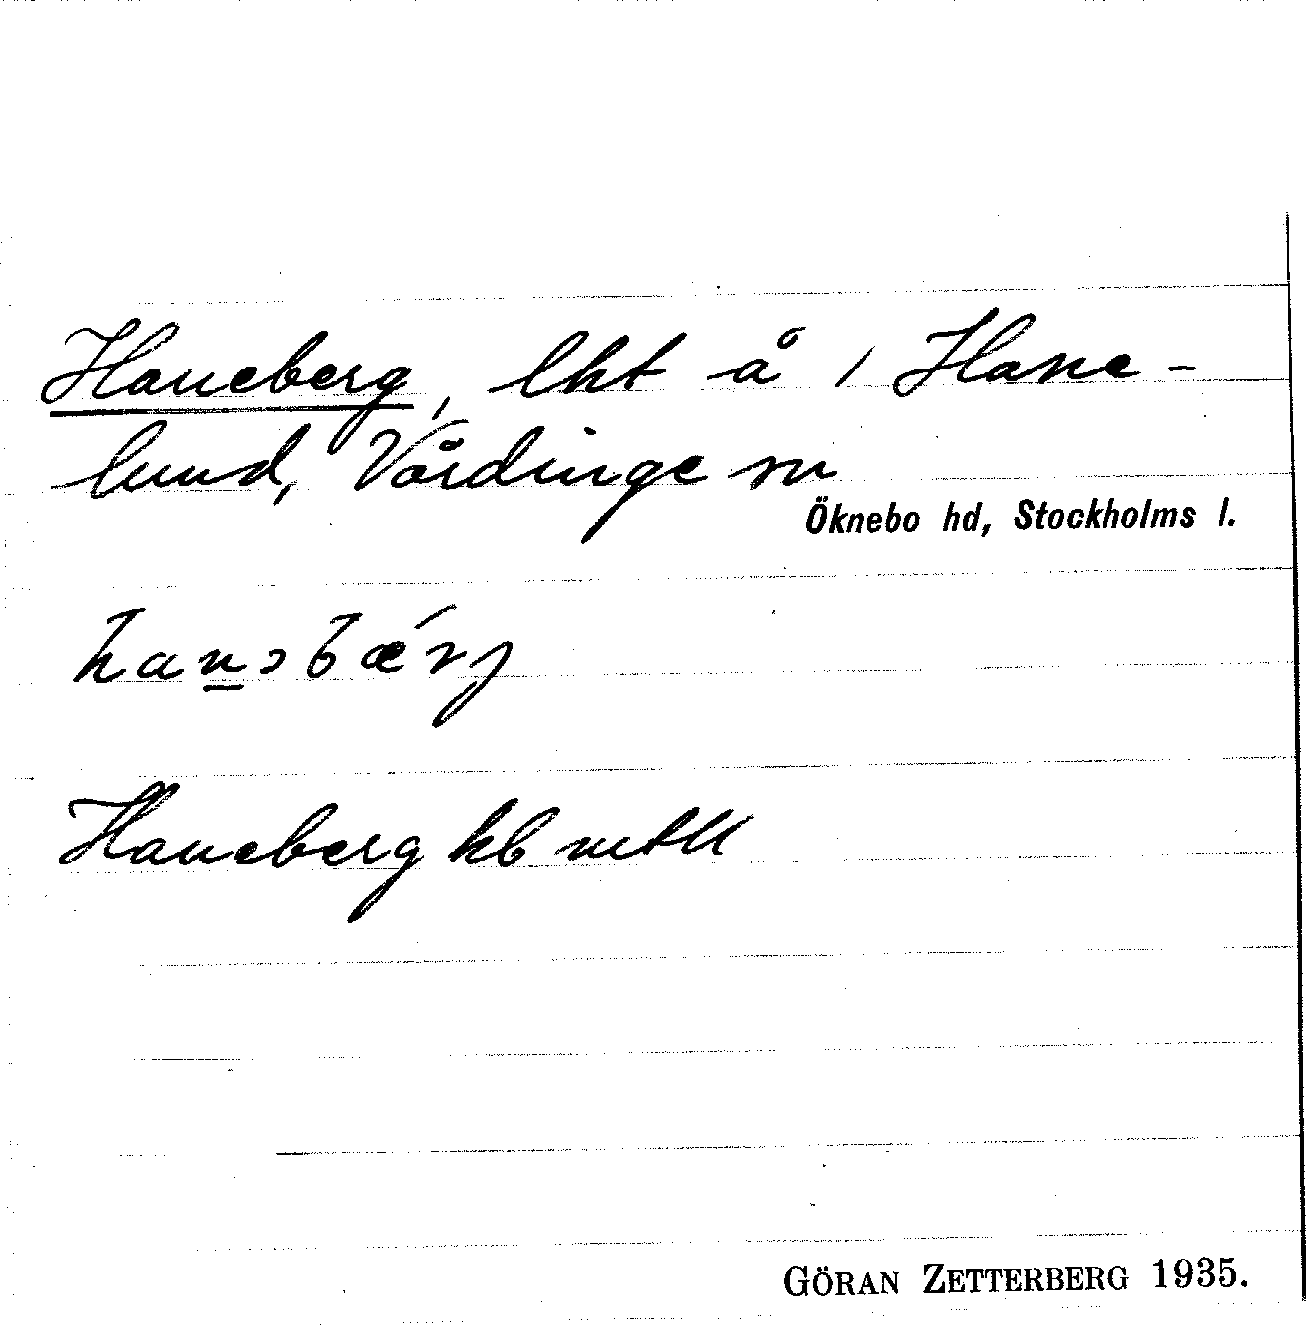 Haneberg, lht å 1 Hane-
lund, Vårdinge sn
Öknebo hd, Stockholms l.
Haneberg kb mtll
GÖRAN ZETTERBERG 1935.